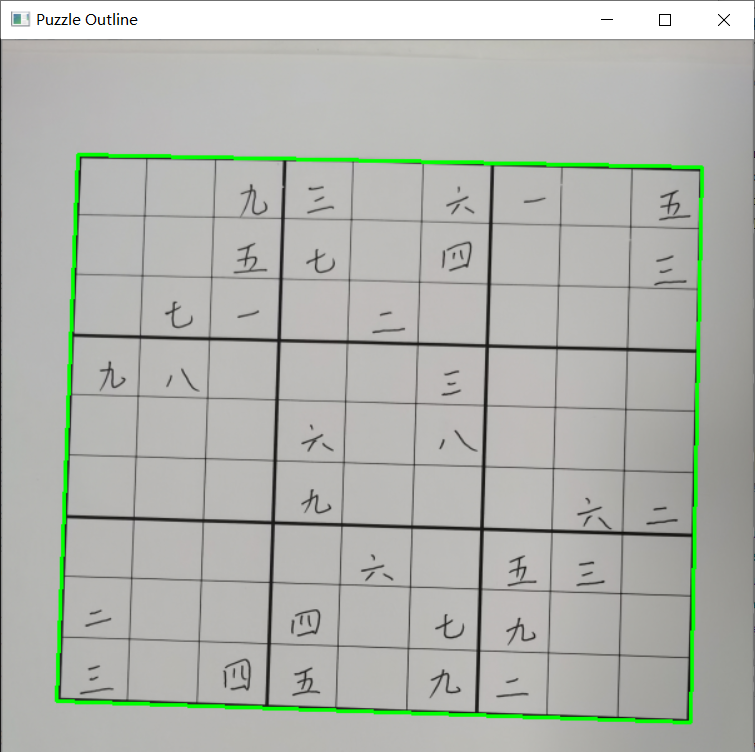 Puzzle Outline
九 三 六 一 五
五 七 四 三
七 一 二
九 八 三
六 八
九 六 二
六 五 三
二 四 七 九
三 四 五 九 二